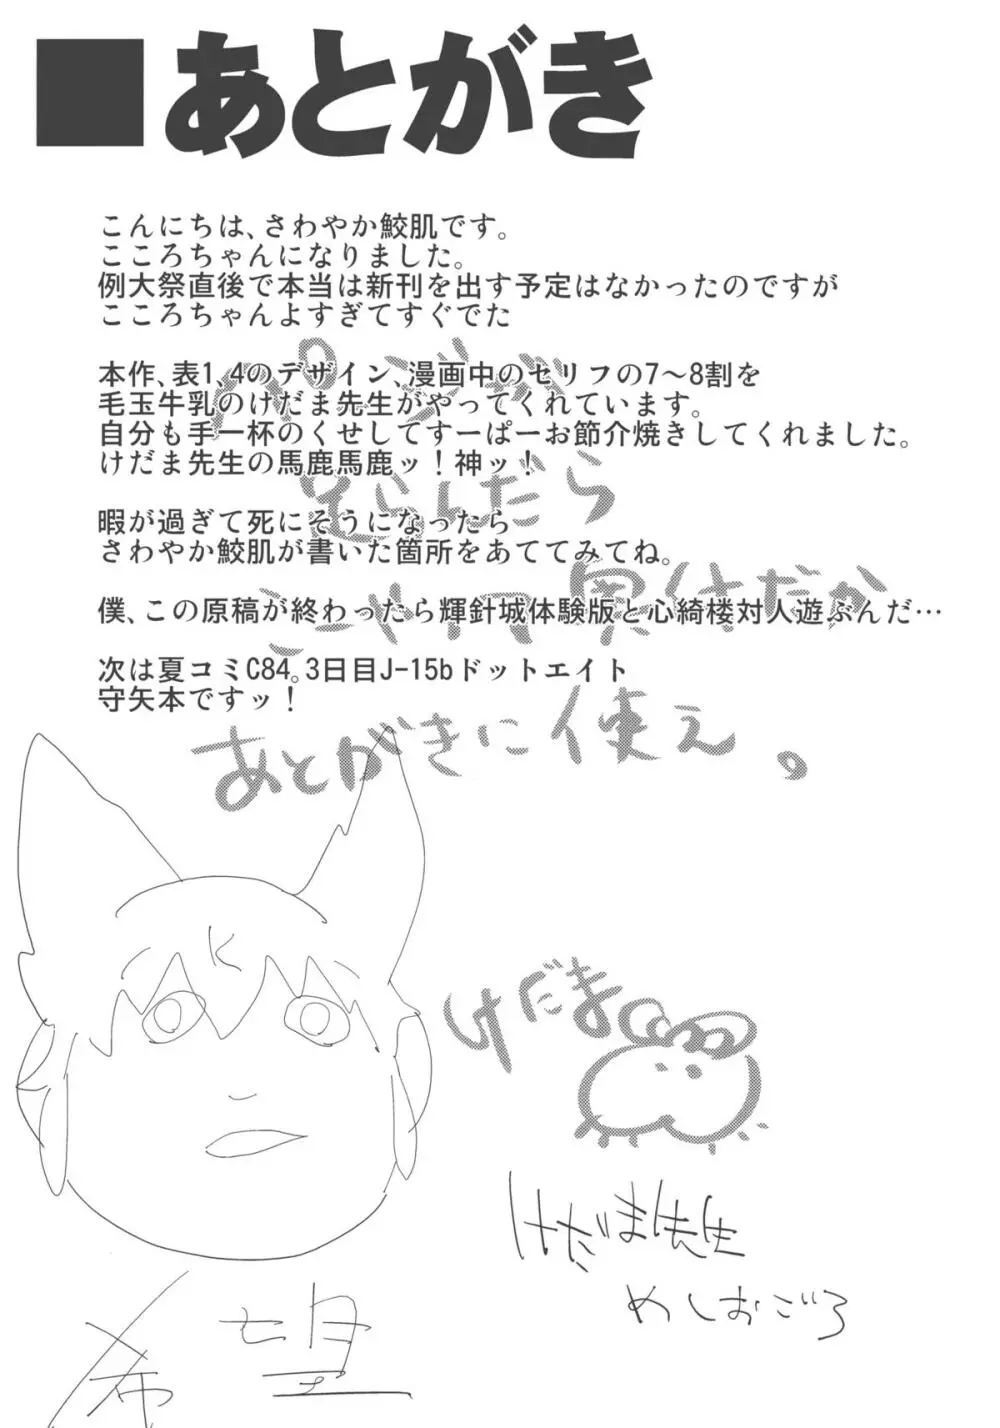 ■あとがき
こんにちは、さわやか鮫肌です。
こころちゃんになりました。
例大祭直後で本当は新刊を出す予定はなかったのですが
こころちゃんよすぎてすぐでた
本作、表1、4のデザイン、漫画中のセリフの7～8割を
毛玉牛乳のけだま先生がやってくれています。
自分も手一杯のくせしてすーぱーお節介焼きしてくれました。
けだま先生の馬鹿馬鹿ッ！神ッ！
暇が過ぎて死にそうになったら
さわやか鮫肌が書いた箇所をあててみてね。
僕、この原稿が終わったら輝針城体験版と心綺楼対人遊ぶんだ…
次は夏コミC84。3日目J-15bドットエイト
守矢本ですッ！
ページが
足らんだら
コイツ実体だか
あとがきに使え。
けだま
けだま先生
めしおごろ
希望